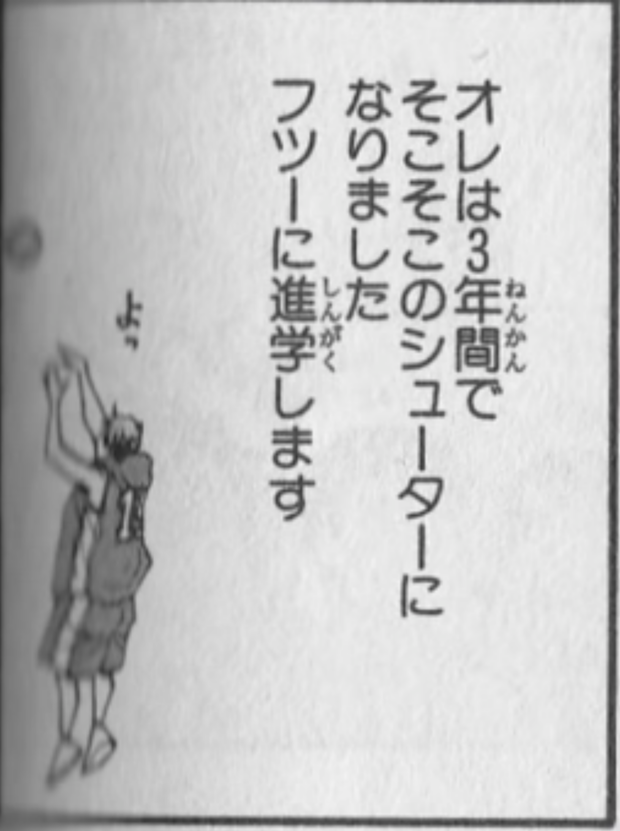 オレは3年間で
そこそこのシューターに
なりました
フツーに進学します
よっ